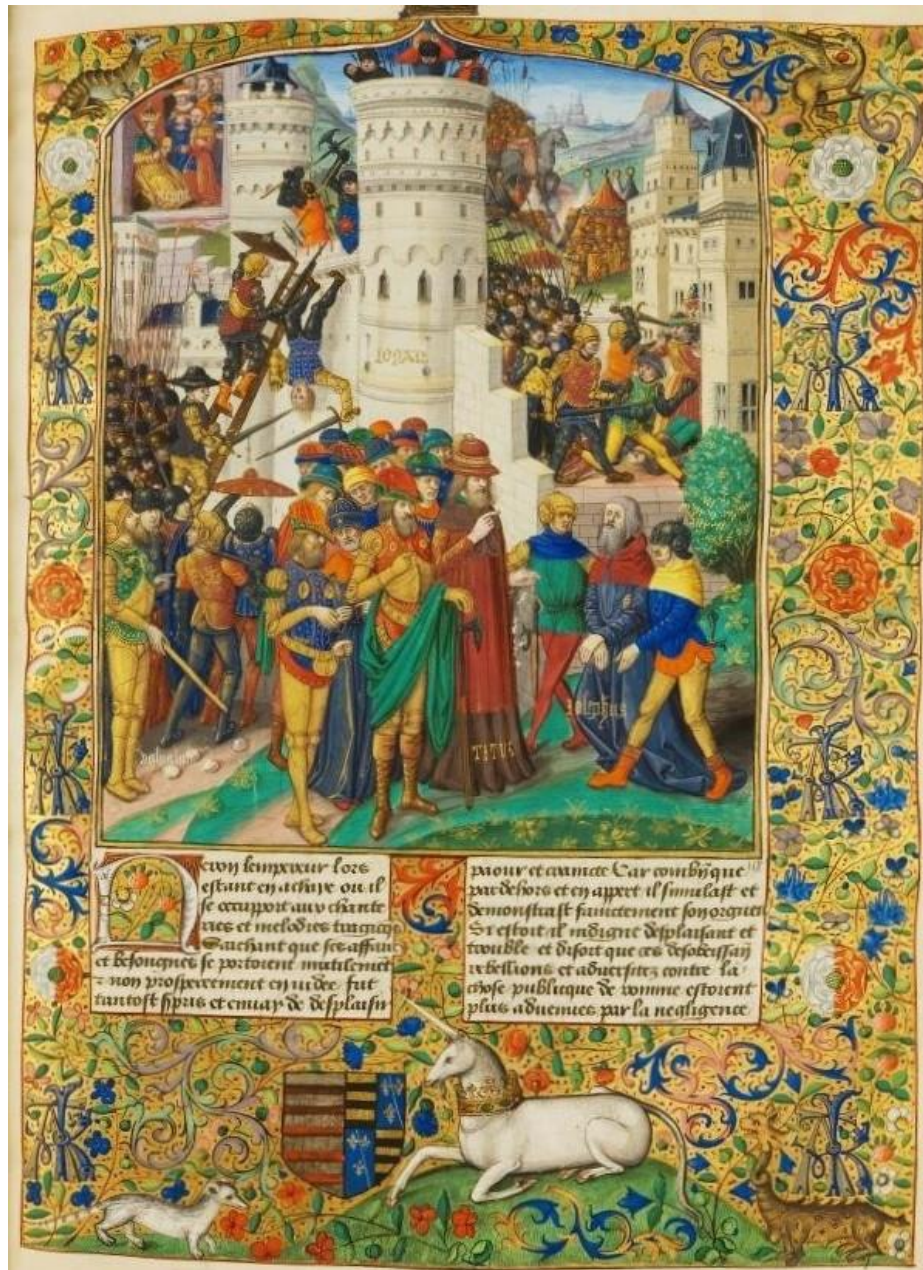 TITUS
iosephus
Neron lempereur lors
estant en achaye ou il
se occupoit aux chante
ries et melodies
Saichant que ses
et besongnes se portoient inutilemet
non prosperement en iudee fut
tantost spris et enuay de
paour et crainte Car combien que
par dehors et en appert il simulast et
demonstrast faintement son orgueil
Si estoit il indigne desplaisant et
trouble et disoit que ces desobeissan
rebellions et aduersitez contre la
chose publicque de romme estoient
plus aduenues par la negligence